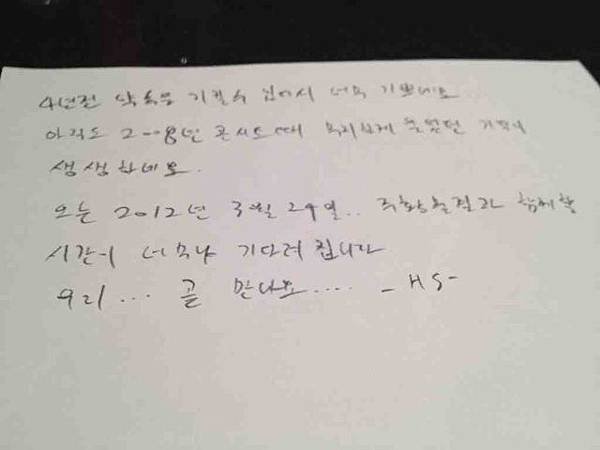 4년전 약속을 지킬수 있어서 너무 기쁘네요
아직도 2008년 콘서트때 불렀던 기억이
생생하네요.
오는 2012년 3월 24일.. 주황물결과 함께할
시간이 너무나 기다려 집니다
우리... 곧 만나요.... - HS -